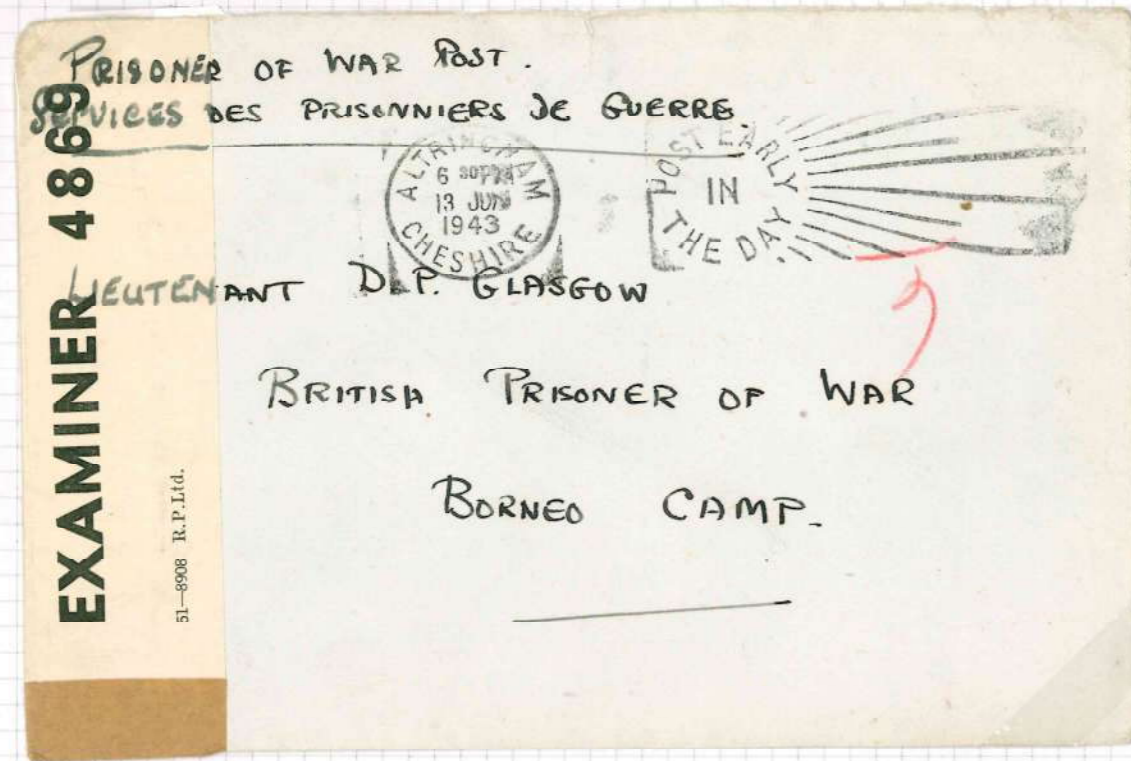 PRISONER OF WAR POST.
SERVICES DES PRISONNIERS DE GUERRE.
ALTRINCHAM
6 30 PM
13 JUN
1943
CHESHIRE
POST EARLY
IN
THE DAY
LIEUTENANT D.P. GLASGOW
BRITISH PRISONER OF WAR
BORNEO CAMP.
EXAMINER 4869
51—8908 R.P.Ltd.